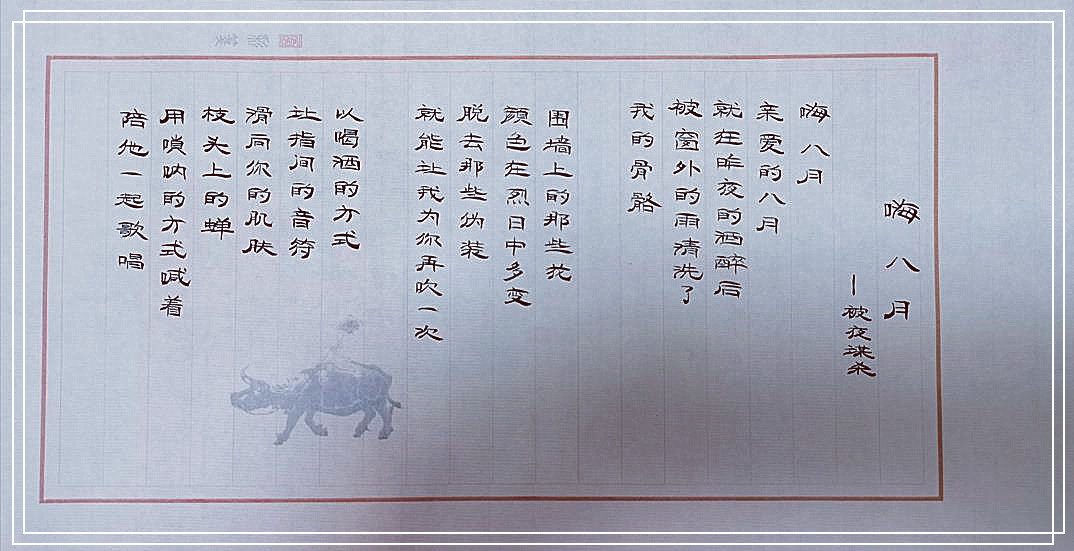 嗨八月
—被夜谋杀
嗨八月
亲爱的八月
就在昨夜的酒醉后
被窗外的雨清洗了
我的骨骼
围墙上的那些花
颜色在烈日中多变
脱去那些伪装
就能让我为你再吹一次
以喝酒的方式
让指间的音符
滑向你的肌肤
枝头上的蝉
用唢呐的方式喊着
陪他一起歌唱